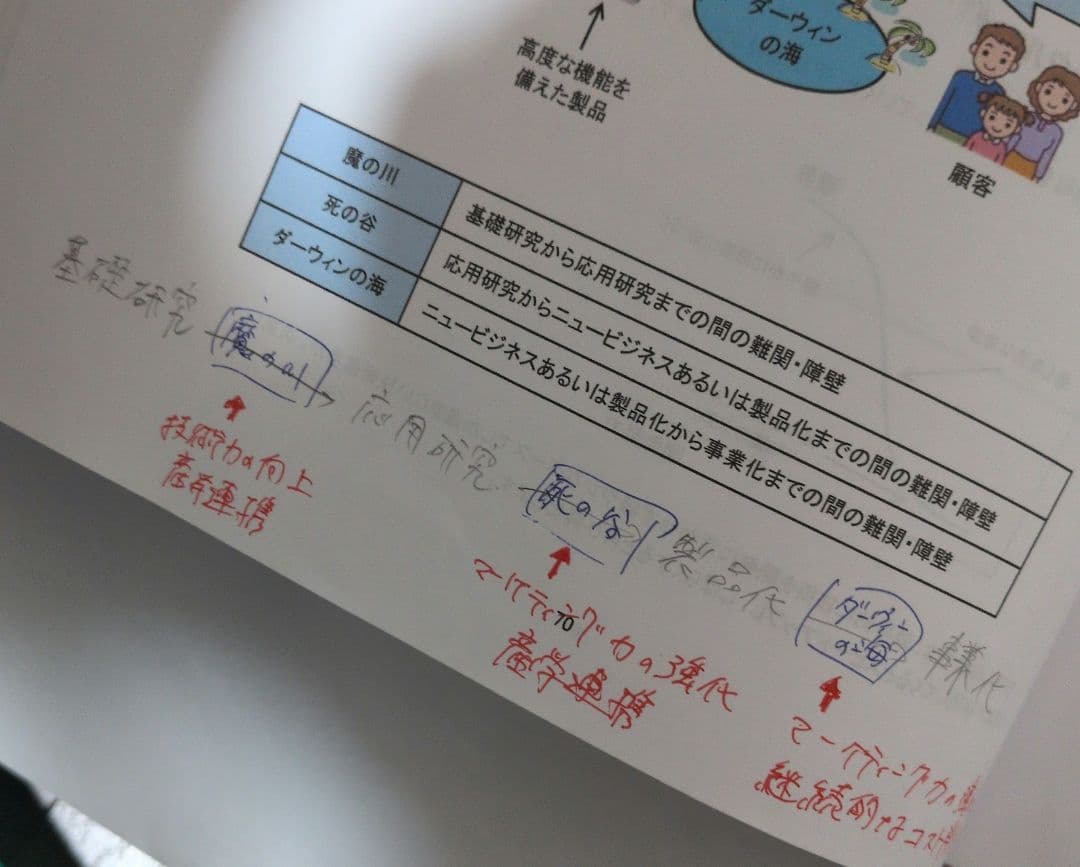 ダーウィン
の海
高度な機能を
備えた製品
顧客
魔の川
基礎研究から応用研究までの間の難関・障壁
死の谷
応用研究からニュービジネスあるいは製品化までの間の難関・障壁
ダーウィンの海
ニュービジネスあるいは製品化から事業化までの間の難関・障壁
基礎研究
魔の川
応用研究
死の谷
製品化
ダーウィン
の海
事業化
技術力の向上
産学連携
マーケティング力の強化
産学連携
70
マーケティング力の
継続的なコスト